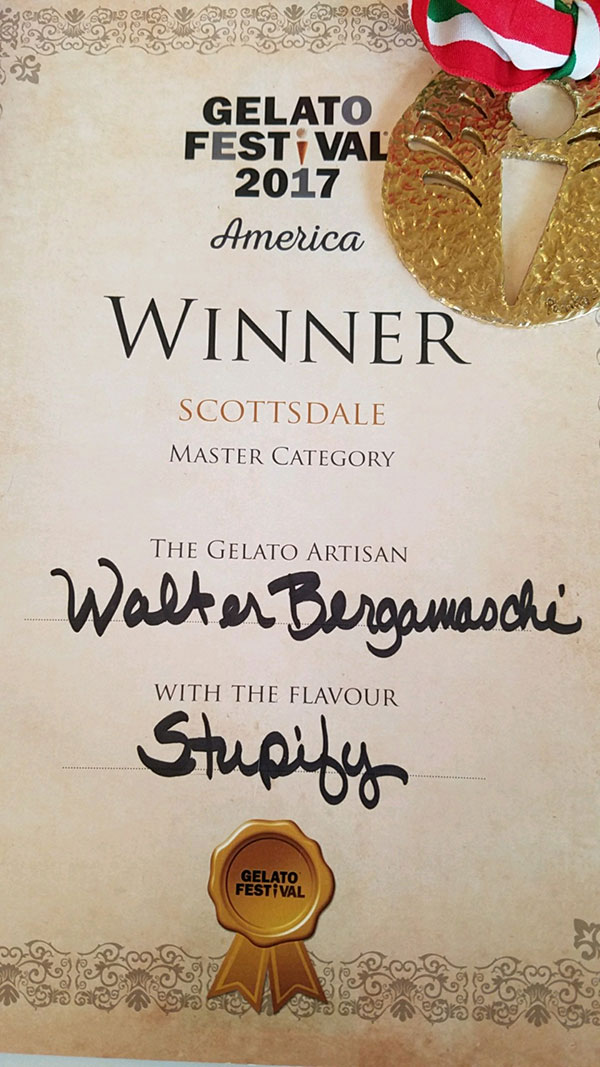 GELATO
FESTIVAL
2017
America
WINNER
SCOTTSDALE
MASTER CATEGORY
THE GELATO ARTISAN
Walter Bergamaschi
WITH THE FLAVOUR
Stupify
GELATO
FESTIVAL